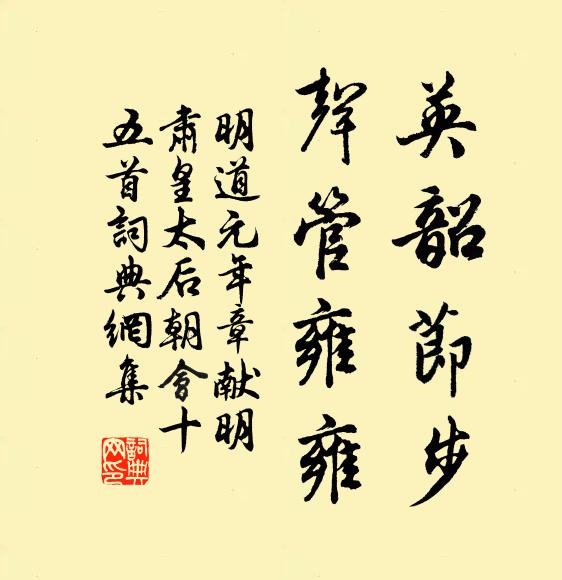 英韶節步
聲管雍雍
明道元年章獻明
肅皇太后朝會十
五首詞典網集
詞典网印